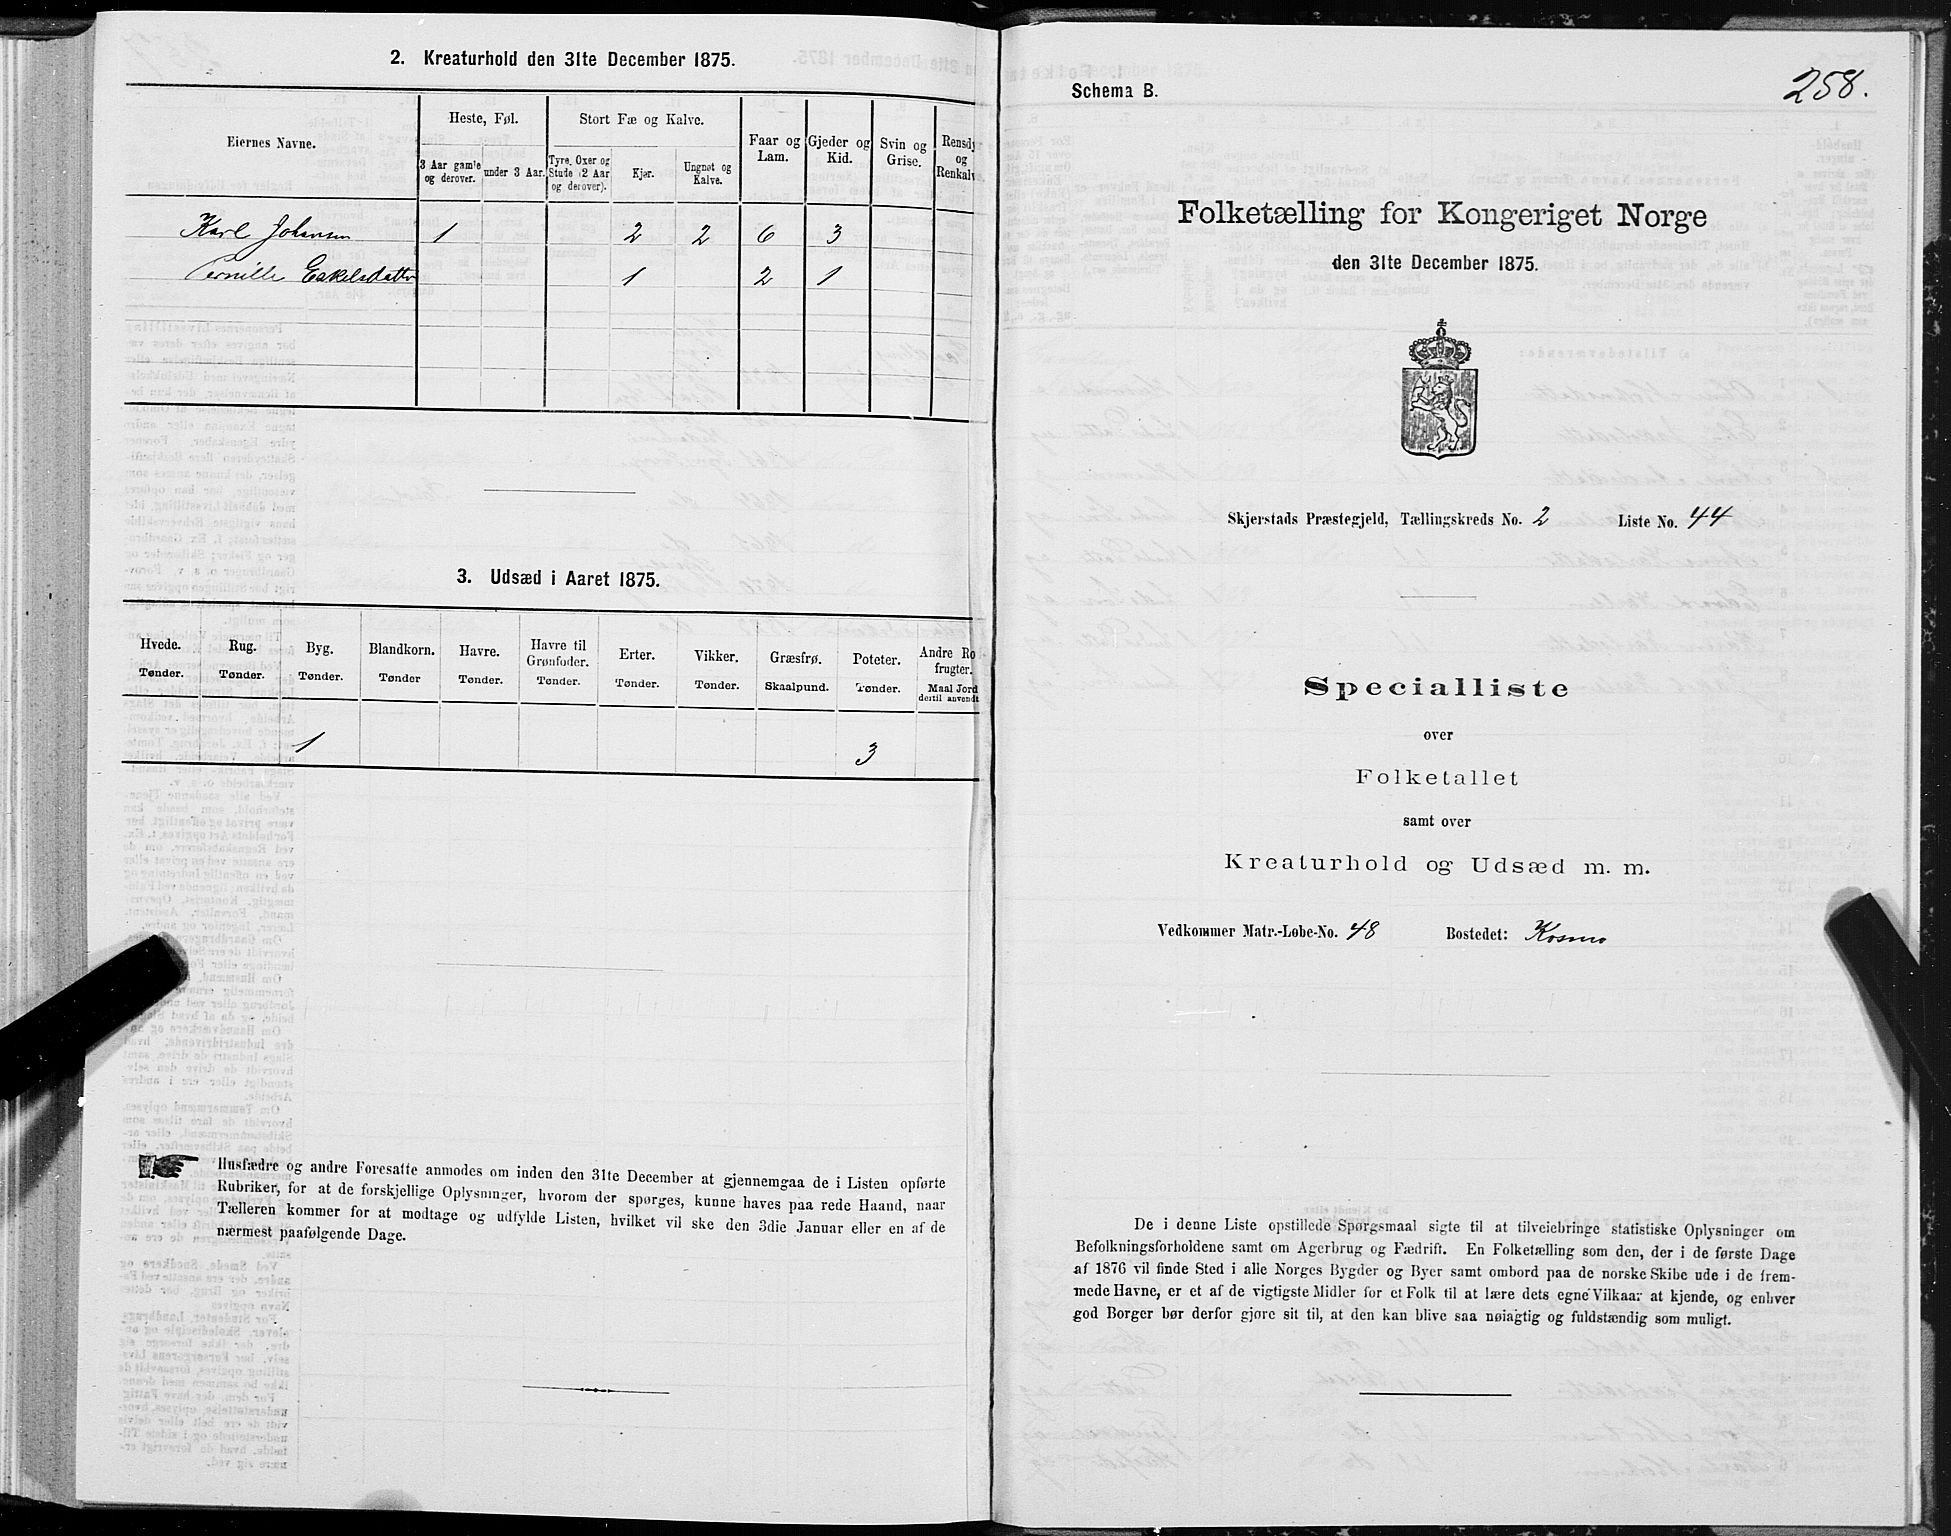 2. Kreaturhold den 31te December 1875.
Eiernes Navne.
Heste, Føl.
Stort Fæ og Kalve.
Faar og Lam.
Gjeder og Kid.
Svin og Grise.
Rensdyr og Renkalve
3 Aar gamle og derover.
under 3 Aar.
Tyre, Oxer og Stude (2 Aar og derover).
Kjør.
Ungnøt og Kalve.
Karl Johansen 1 2 2 6 3
Pernille Eskelsdatter 1 2 1
3. Udsæd i Aaret 1875.
Hvede. Rug. Byg. Blandkorn. Havre. Havre til Grønfoder. Erter. Vikker. Græsfrø. Poteter. Andre Ro frugter.
Tønder. Tønder. Tønder. Tønder Tønder. Tønder. Tønder. Tønder. Skaalpund. Tønder. Maal Jord dertil anvendt
1 3
Husfædre og andre Foresatte anmodes om inden den 31te December at gjennemgaa de i Listen opførte
Rubriker, for at de forskjellige Oplysninger, hvorom der spørges, kunne haves paa rede Haand, naar
Tælleren kommer for at modtage og udfylde Listen, hvilket vil ske den 3die Januar eller en af de
nærmest paafølgende Dage.
258.
Schema B.
Folketælling for Kongeriget Norge
den 31te December 1875.
Skjerstads Præstegjeld, Tællingskreds No. 2 Liste No. 44
Specialliste
over
Folketallet
samt over
Kreaturhold og Udsæd m. m.
Vedkommer Matr.-Løbe-No. 48 Bostedet: Kosmo
De i denne Liste opstillede Spørgsmaal sigte til at tilveiebringe statistiske Oplysninger om
Befolkningsforholdene samt om Agerbrug og Fædrift. En Folketælling som den, der i de første Dage
af 1876 vil finde Sted i alle Norges Bygder og Byer samt ombord paa de norske Skibe ude i de frem-
mede Havne, er et af de vigtigste Midler for et Folk til at lære dets egne Vilkaar at kjende, og enhver
god Borger bør derfor gjøre sit til, at den kan blive saa nøiagtig og fuldstændig som muligt.